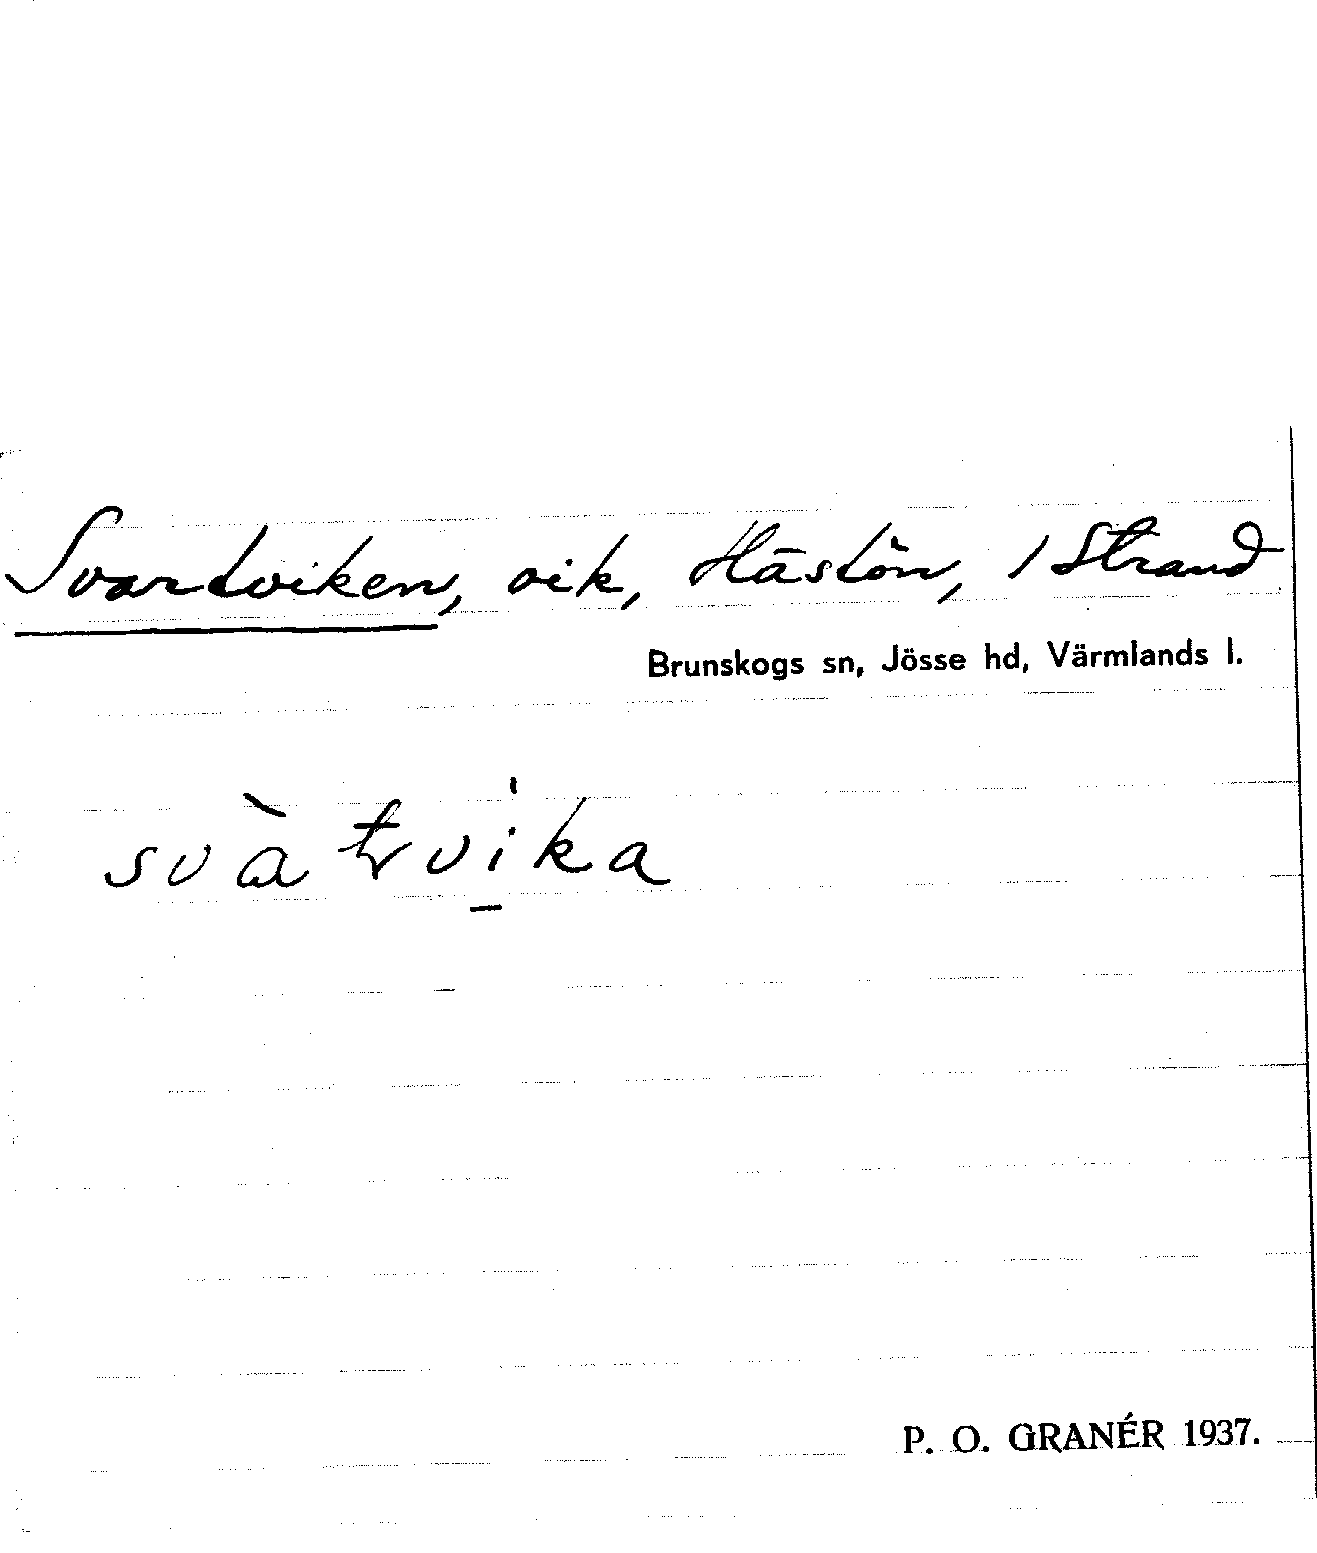 Svartviken, vik, Hästön, 1 Strand
Brunskogs sn, Jösse hd, Värmlands l.
svàtvika
P. O. GRANÉR 1937.